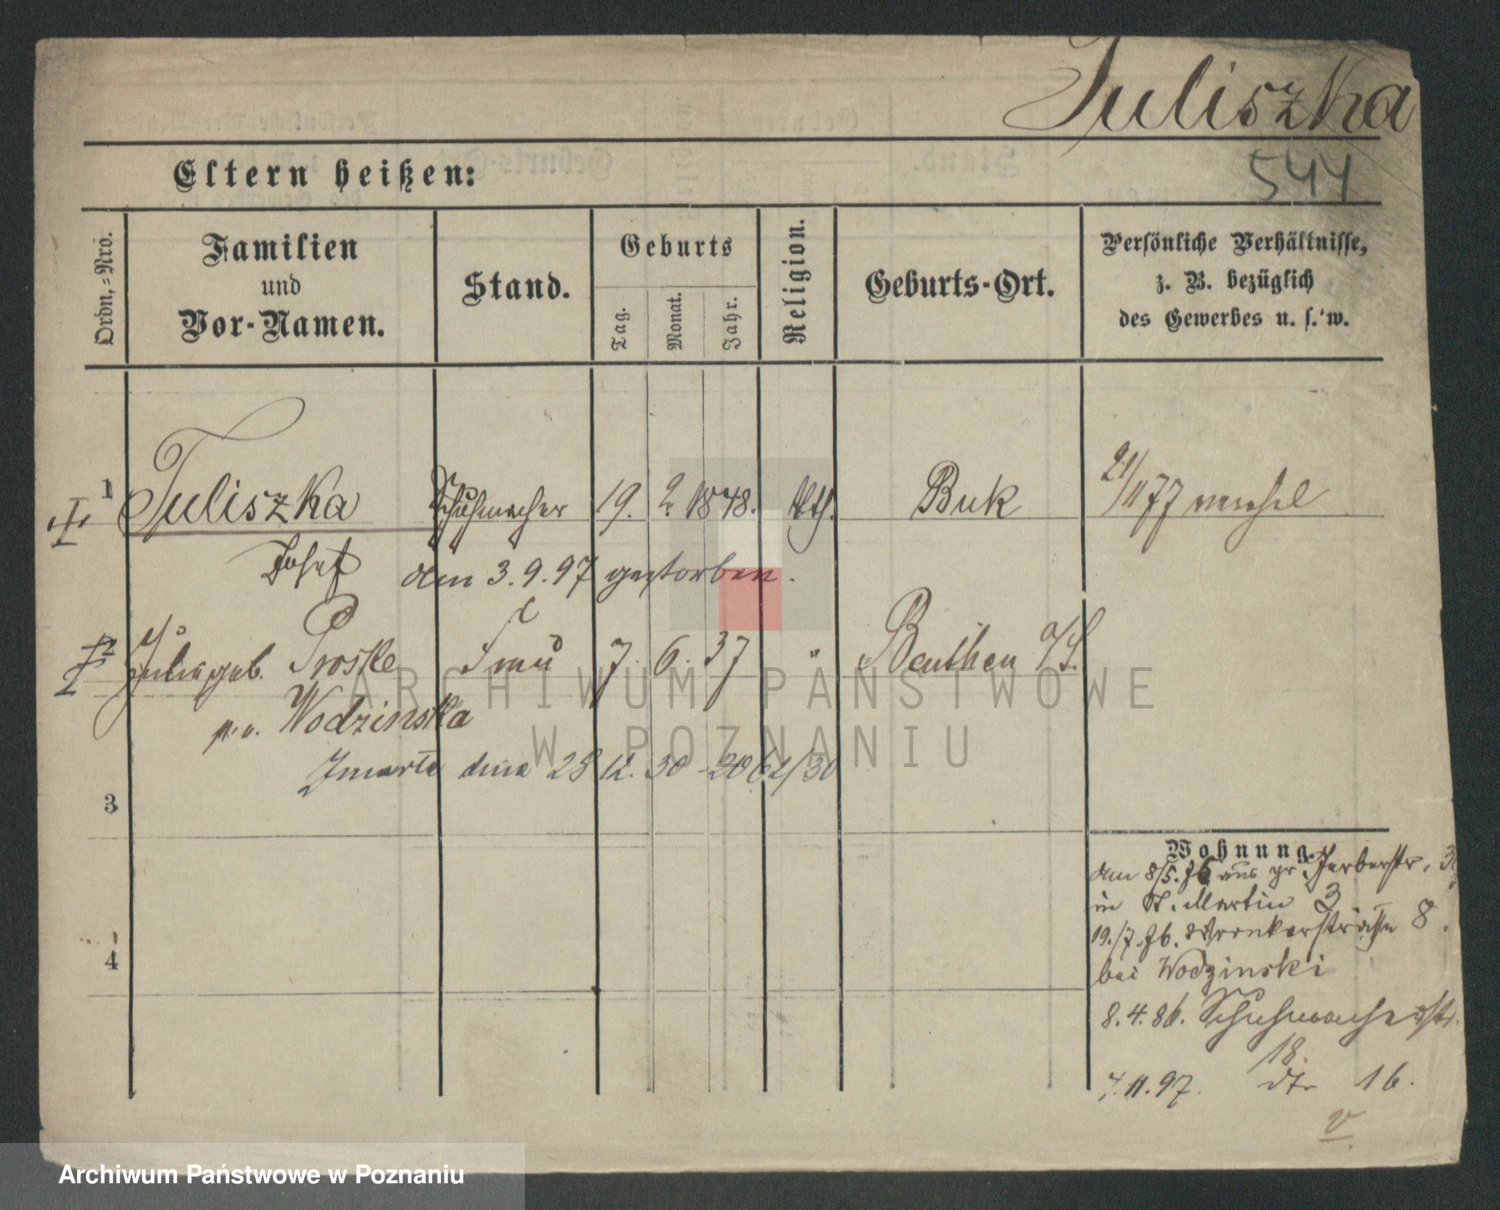 Tuliszka
544
Eltern heißen:
Ordn.=Nro.
Familien
und
Vor-Namen.
Stand.
Geburts
Tag.
Monat.
Jahr.
Religion.
Geburts-Ort.
Persönliche Verhältnisse,
z. B. bezüglich
des Gewerbes u. s. w.
1 Tuliszka Schuhmacher 19. 2. 1848. kth. Buk 21/11 77
Josef den 3.9.97 gestorben.
Julie geb. Proske Frau 7. 6. 37 " Beuthen O/S.
p. v. Wodzinska
Zmarła dnia 28 12. 30
3
4
Wohnung.
den 8/5. 76 aus gr. Gerberstr.
in St. Martin 3
19./7. 76. Wronkerstraße 8.
bei Wodzinski
8.4.86. Schuhmacherstr.
18.
4.11.97. dto 16.
v
ARCHIWUM PAŃSTWOWE
W POZNANIU
Archiwum Państwowe w Poznaniu